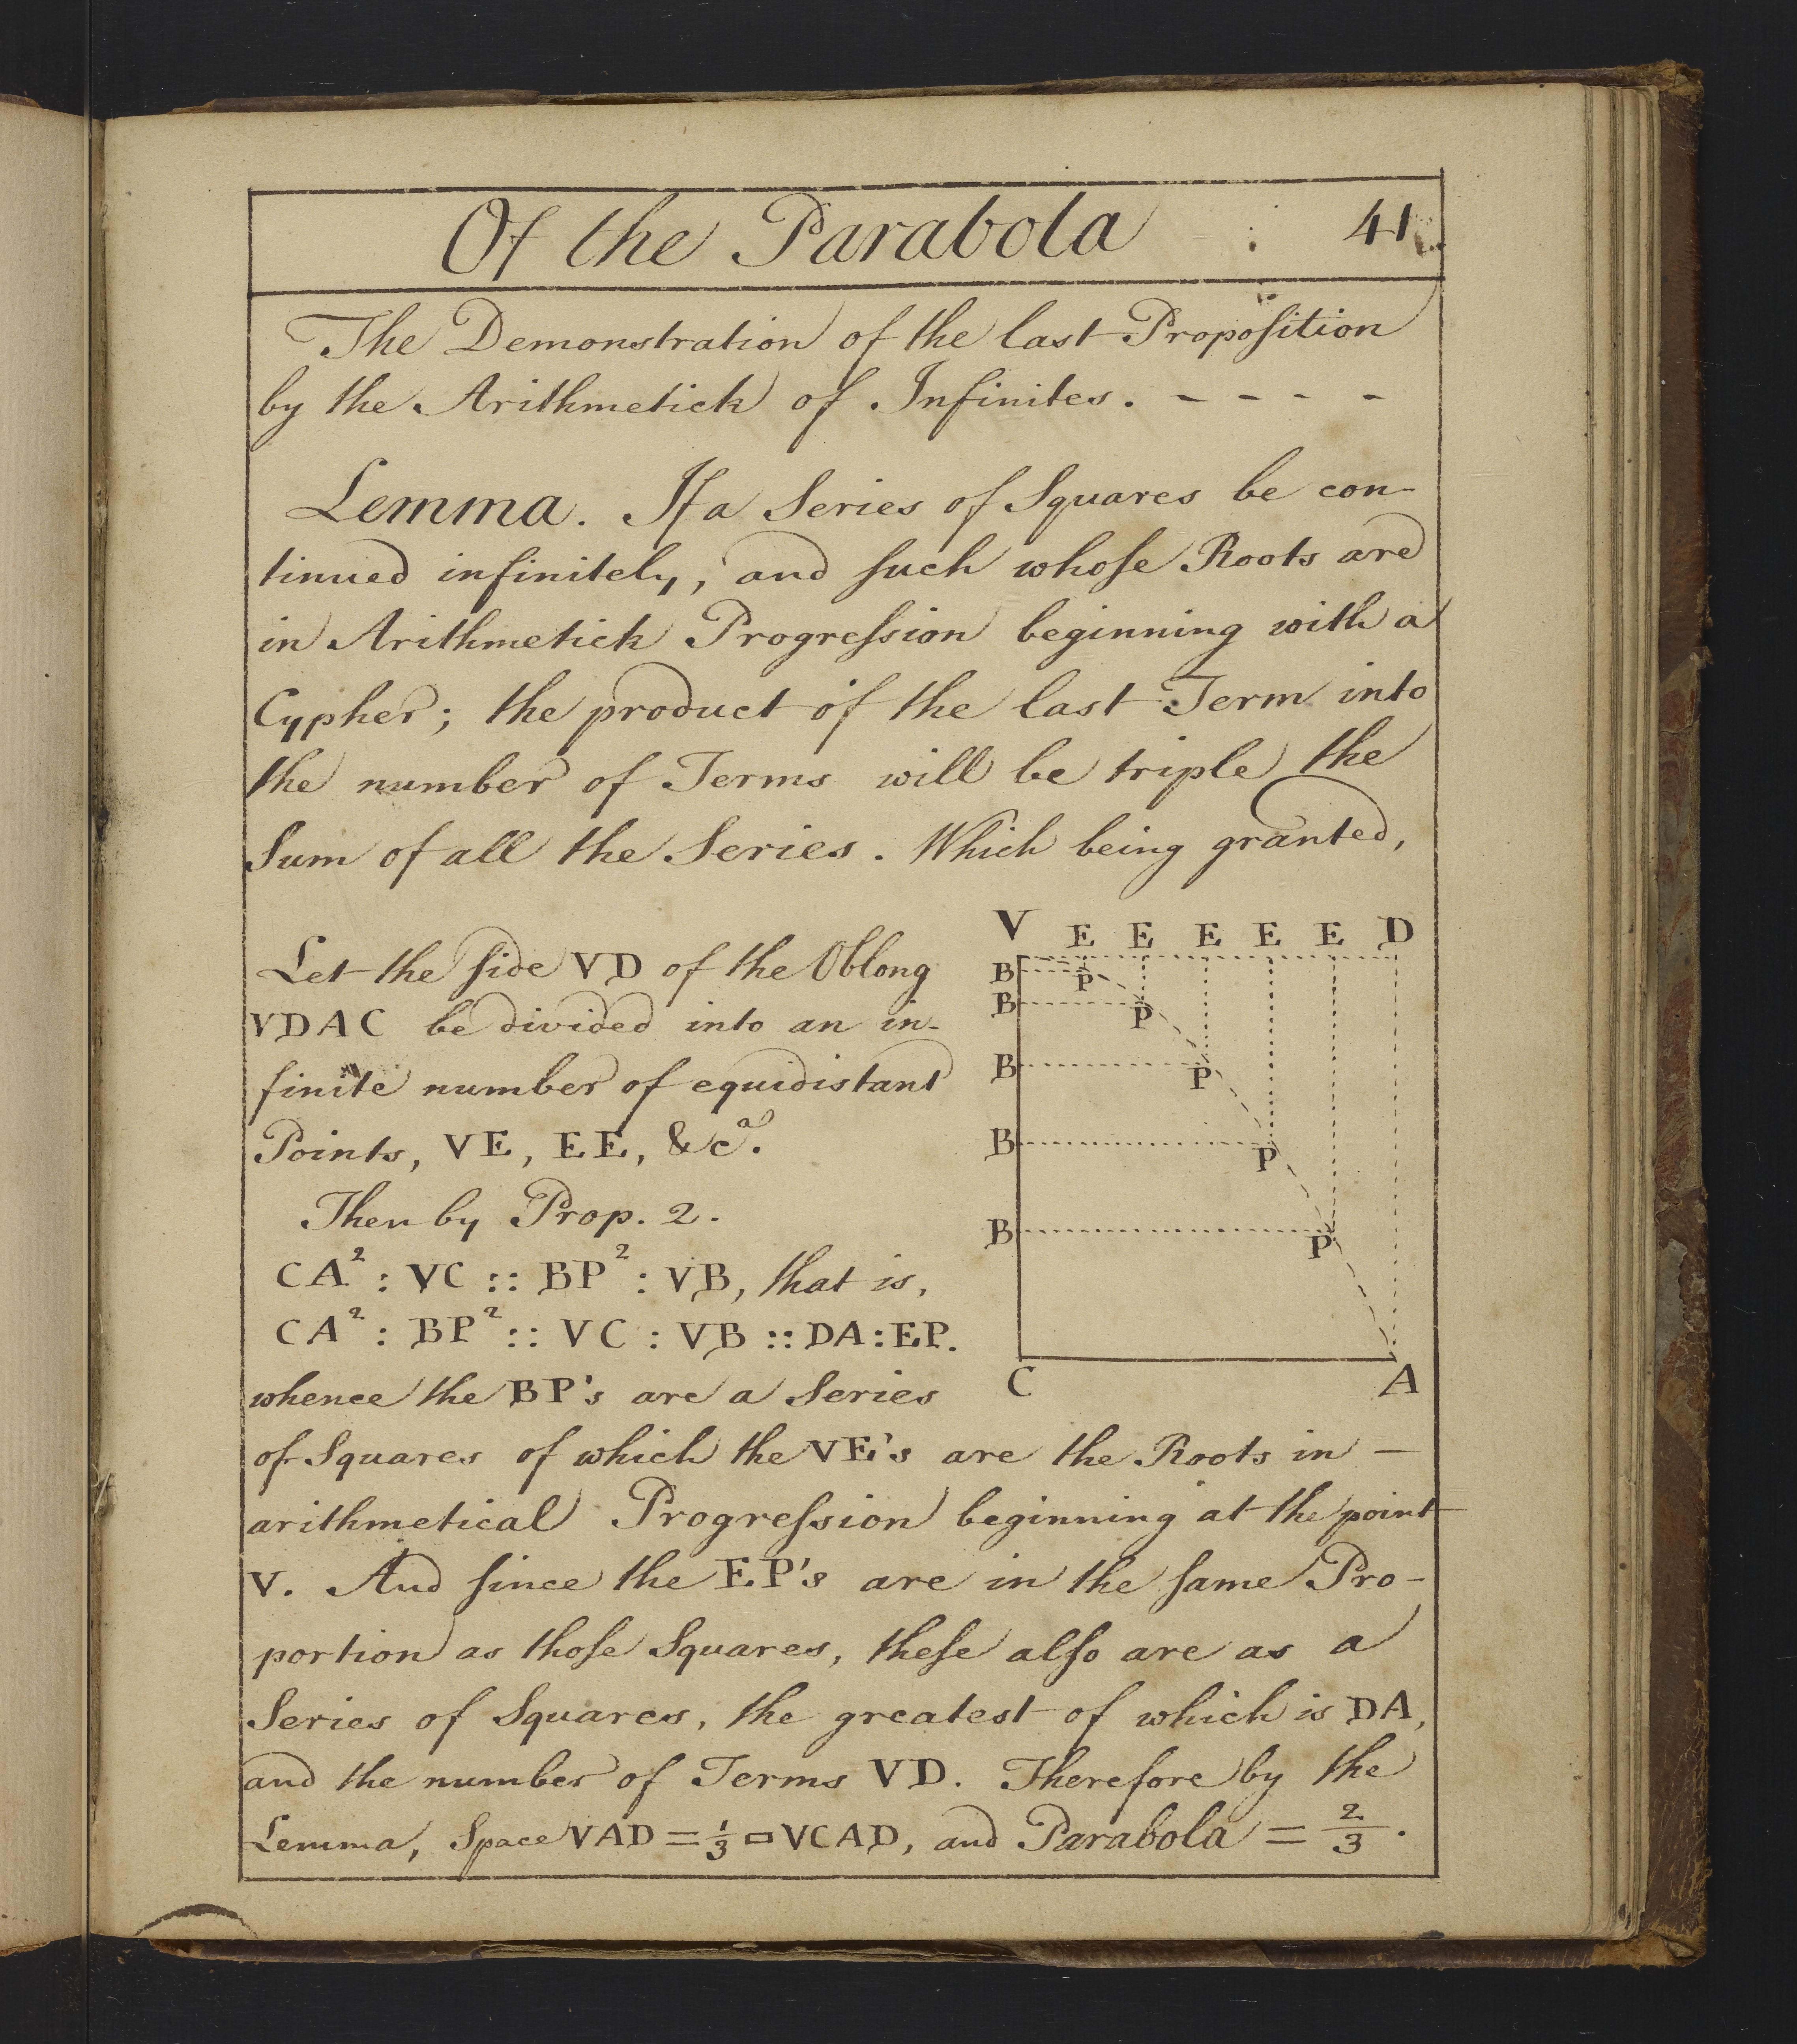 Of the Parabola : 41
The Demonstration of the last Propoſition
by the Arithmetick of Infinites. - - - -
Lemma. If a Series of Squares be con-
tinued infinitely, and ſuch whoſe Roots are
in Arithmetick Progreſsion beginning with a
Cypher; the product of the last Term into
the number of Terms will be triple the
Sum of all the Series. Which being granted,
Let the ſide VD of the Oblong
VDAC be divided into an in-
finite number of equidistant
Points, VE, EE, &cᵃ.
Then by Prop. 2.
CA² : VC :: BP² : VB, that is,
CA² : BP² :: VC : VB :: DA : EP.
whence the BP's are a Series
of Squares of which the VE's are the Roots in —
arithmetical Progreſsion beginning at the point
V. And ſince the EP's are in the ſame Pro-
portion as thoſe Squares, theſe alſo are as a
Series of Squares, the greatest of which is DA,
and the number of Terms VD. Therefore by the
Lemma, Space VAD = 1/3 ▭ VCAD, and Parabola = 2/3.
V E E E E E D
B P
B P
B P
B P
B P
C A